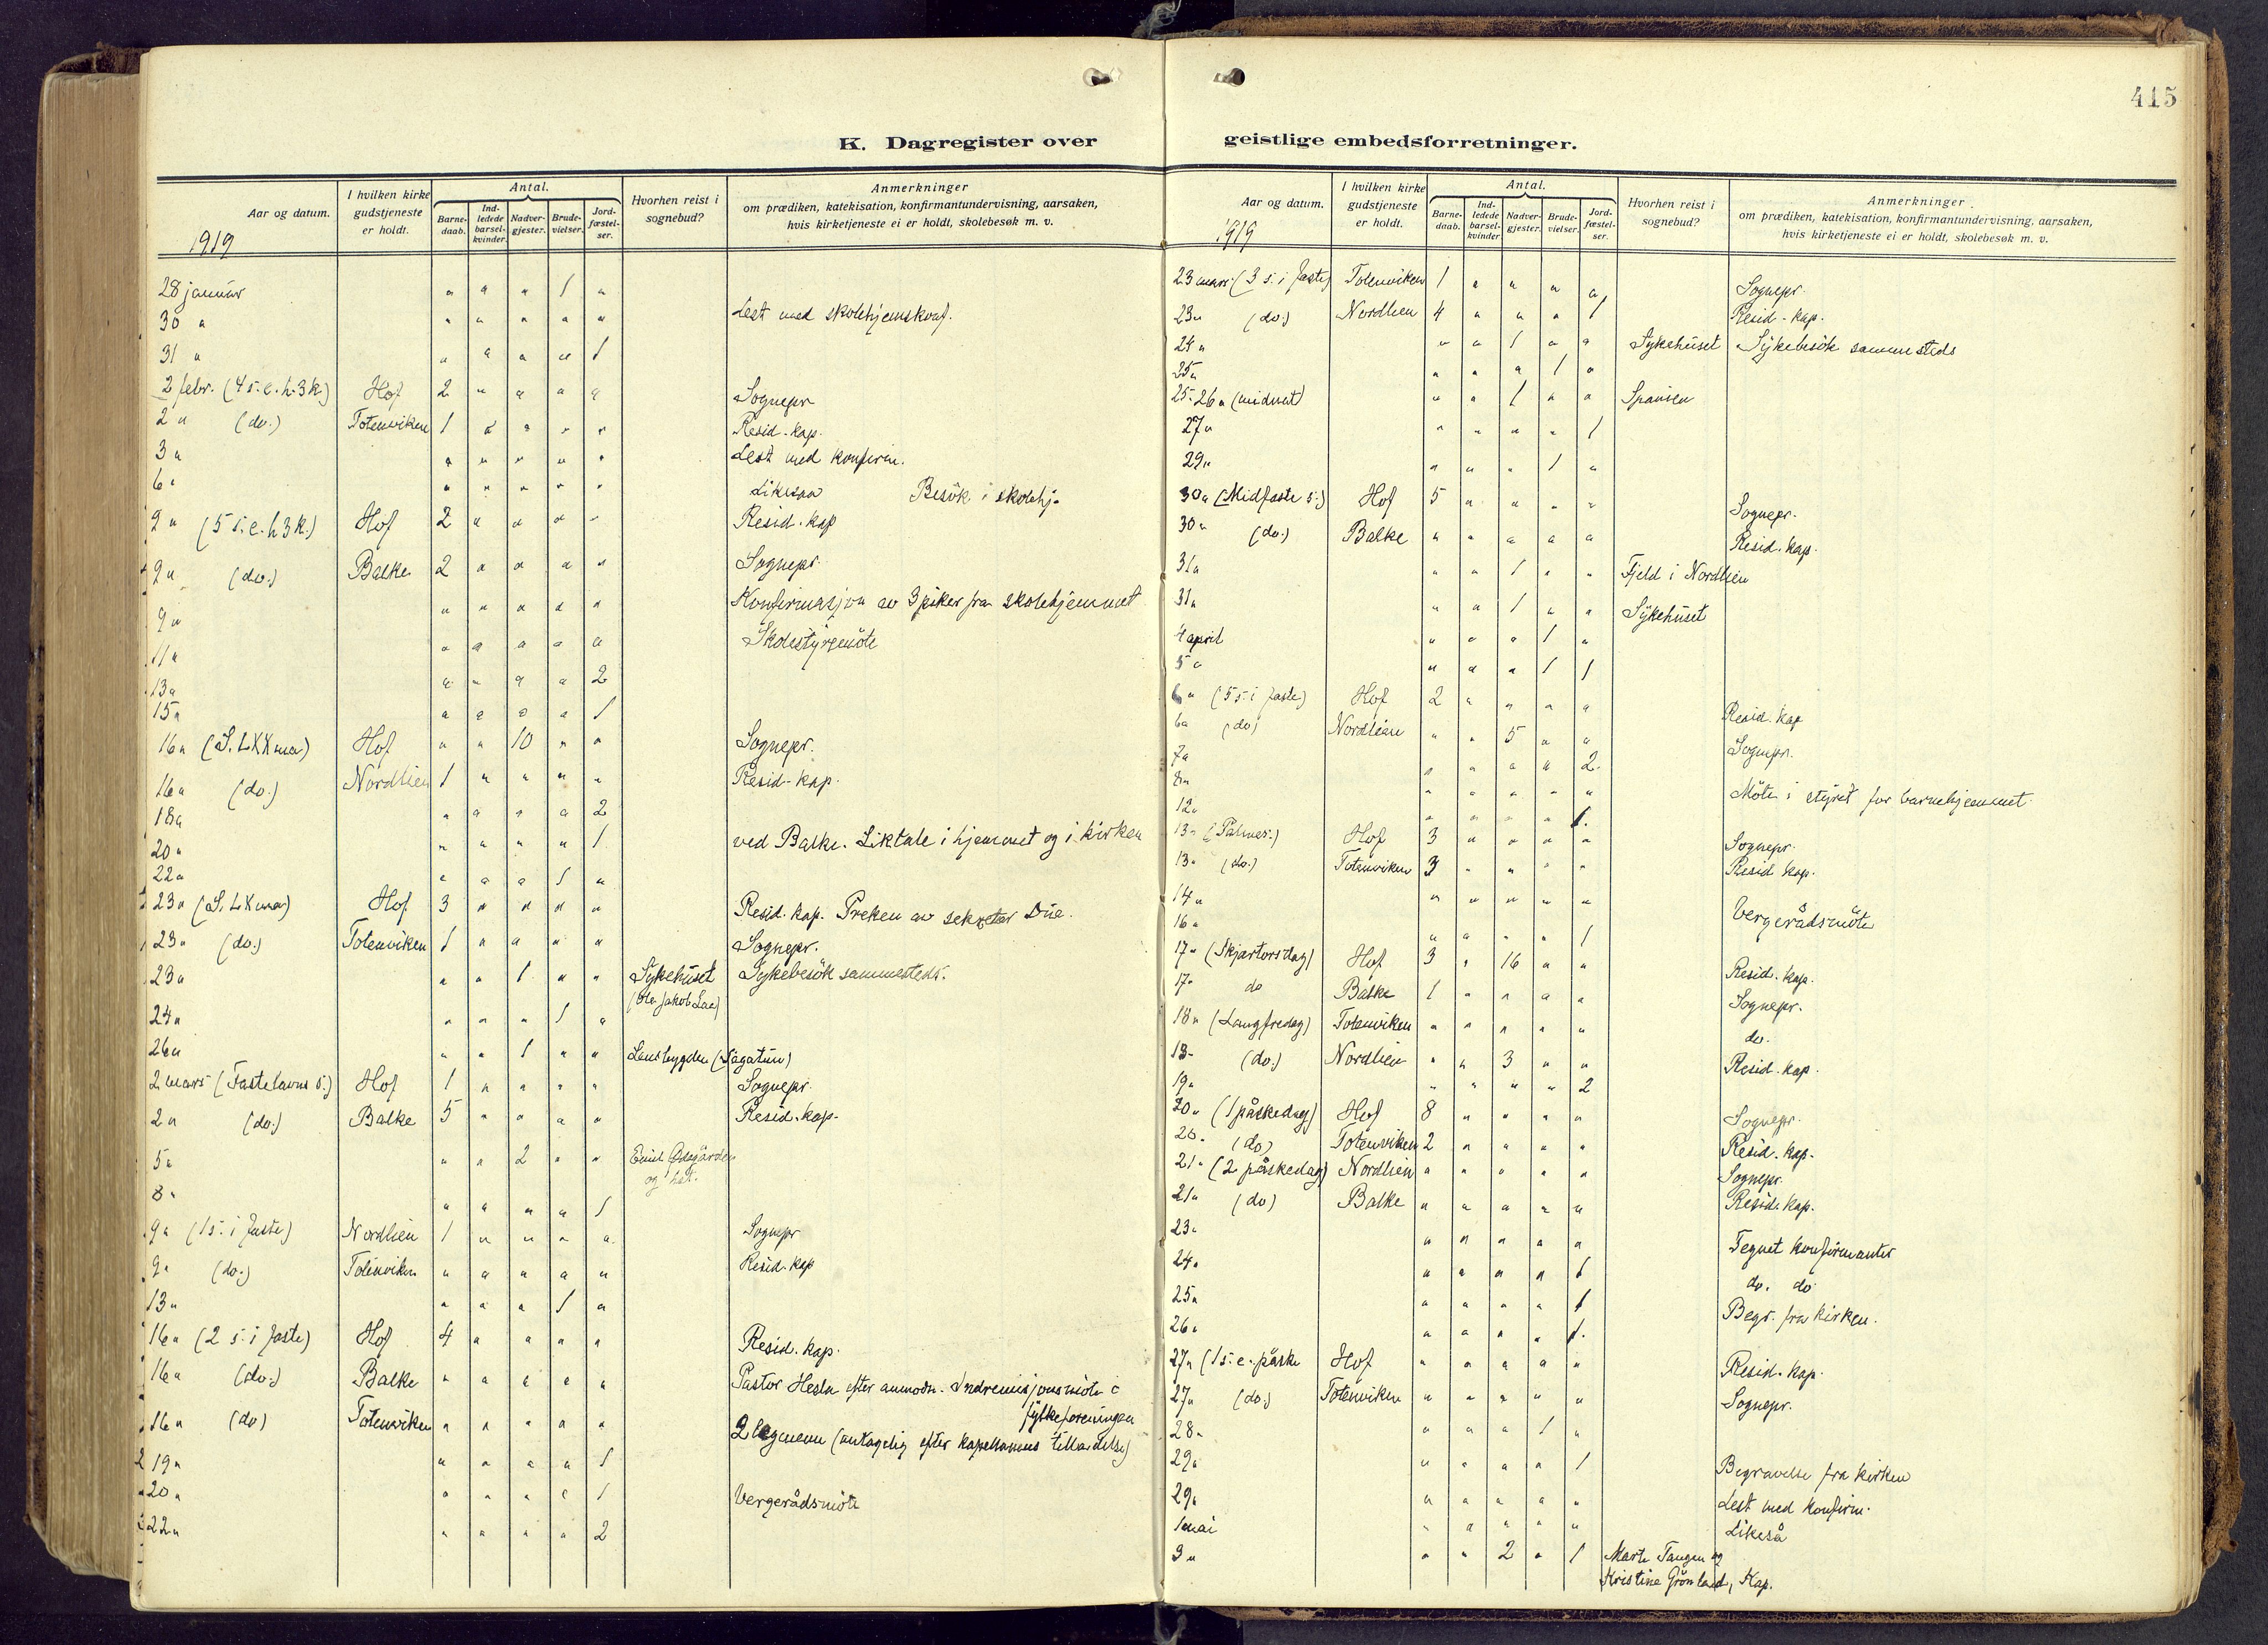 415
K. Dagregister over geistlige embedsforretninger.
Aar og datum. I hvilken kirke gudstjeneste er holdt. Antal. Barne-daab. Ind-ledede barsel-kvinder. Nadver-gjester. Brude-vielser. Jord-fæstel-ser. Hvorhen reist i sognebud? Anmerkninger om prædiken, katekisation, konfirmantundervisning, aarsaken, hvis kirketjeneste ei er holdt, skolebesøk m. v.
1919
28 januar " " " 1 "
30 " " " " " " Lest med skolehjemskonf.
31 " " " " " 1
2 febr. (4 s. e. h. 3 k.) Hof 2 " " " " Sognepr
2 " (do.) Totenviken 1 " " " " Resid. kap.
3 " " " " " " Lest med konfirm.
6 " " " " " " Likesaa Besök i skolehj.
9 " (5 s. e. h 3 k.) Hof 2 " " " " Resid. kap
9 " (do.) Balke 2 " " " " Sognepr.
9 " " " " " " Konfirmasjon av 3 piker fra skolehjemmet
11 " " " " " " Skolestyremöte
13 " " " " " 2
15 " " " " " 1
16 " (S. LXXma) Hof " " 10 " " Sognepr.
16 " (do.) Nordlien 1 " " " " Resid. kap.
18 " " " " " 2
20 " " " " " 1 ved Balke. Liktale i hjemmet og i kirken
22 " " " " 1 "
23 " (S. LXma) Hof 3 " " " " Resid. kap. Preken av sekretær Due.
23 " (do.) Totenviken 1 " " " " Sognepr.
23 " " " 1 " " Sykehuset Sykebesök sammesteds.
24 " " " " 1 "
26 " " " 1 " "
2 mars (Fastelavns s.) Hof 1 " " " " Sognepr.
2 " (do.) Balke 5 " " " " Resid. kap.
5 " " " 2 " " Emil Ödegården
og
8 " " " " " 1
9 " (1 s. i faste) Nordlien 1 " " " " Sognepr
9 " (do.) Totenviken " " " " " Resid. kap
13 " " " " 1 "
16 " (2 s. i faste) Hof 4 " " " " Resid. kap.
16 " (do.) Balke " " " " " Pastor Hesla efter anmodn. Indremisjonsmöte i
fylkeforeningen
16 " (do) Totenviken " " " " " 2 lægmenn (antagelig efter kapellanens tilladelse)
19 " " " " " 1
20 " " " " " 1 Vergerådsmöte
22 " " " " " 2
Aar og datum. I hvilken kirke gudstjeneste er holdt. Antal. Barne-daab. Ind-ledede barsel-kvinder. Nadver-gjester. Brude-vielser. Jord-fæstel-ser. Hvorhen reist i sognebud? Anmerkninger om prædiken, katekisation, konfirmantundervisning, aarsaken, hvis kirketjeneste ei er holdt, skolebesøk m. v.
1919
23 mars (3 s. i faste) Totenviken 1 " " " " Sognepr.
23 " (do.) Nordlien 4 " " " 1 Resid. kap.
24 " " " 1 " " Sykehuset Sykebesök sammesteds
25 " " " " 1 "
25-26 " (midnat) " " 1 " "
27 " " " " " 1
29 " " " " 1 "
30 " (Midfaste s.) Hof 5 " " " " Sognepr.
30 " (do.) Balke " " " " " Resid. kap.
31 " " " 1 " " Fjeld i Nordlien
31 " " " 1 " " Sykehuset
4 april " " " 1 "
5 " " " " 1 1
6 " (5 s. i faste) Hof 2 " " " " Resid. kap
6 " (do) Nordlien " " 5 " " Sognepr.
7 " " " " " 2
8 " " " " " " Möte i styret for barnehjemmet
12 " " " " " 1
13 " (Palmes.) Hof 3 " " " " Sognepr.
13 " (do.) Totenviken 3 " " " " Resid. kap.
14 " " " " " " Vergerådsmöte
16 " " " " " 1
17 " (Skjærtorsdag) Hof 3 " 16 " " Resid. kap.
17 " do Balke 1 " " " " Sognepr.
18 " (Langfredag) Totenviken " " " " " do.
18 " (do.) Nordlien " " 3 " " Resid. kap.
19 " " " " " 2
20 " (1 påskedag) Hof 8 " " " " Sognepr.
20 " (do) Totenviken 2 " " " " Resid. kap.
21 " (2 påskedag) Nordlien " " " " " Sognepr.
21 " (do) Balke " " " " " Resid. kap.
23 " " " " " " Tegnet konfirmanter
24 " " " " " 1 do. do
25 " " " " " 1 Begr. fra kirken.
26 " " " " " 1
27 " (1 s. e. påske Hof " " " " " Resid. kap.
27 " (do.) Totenviken " " " " " Sognepr.
28 " " " " 1 "
29 " " " " " 1 Begravelse fra kirken
29 " " " " " " Lest med konfirm.
1 mai " " " " " Likeså
3 " " " 2 " 1 Marte Tangen og
Kristine Grönland, Kap.